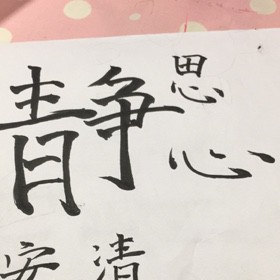 静思
心
安清